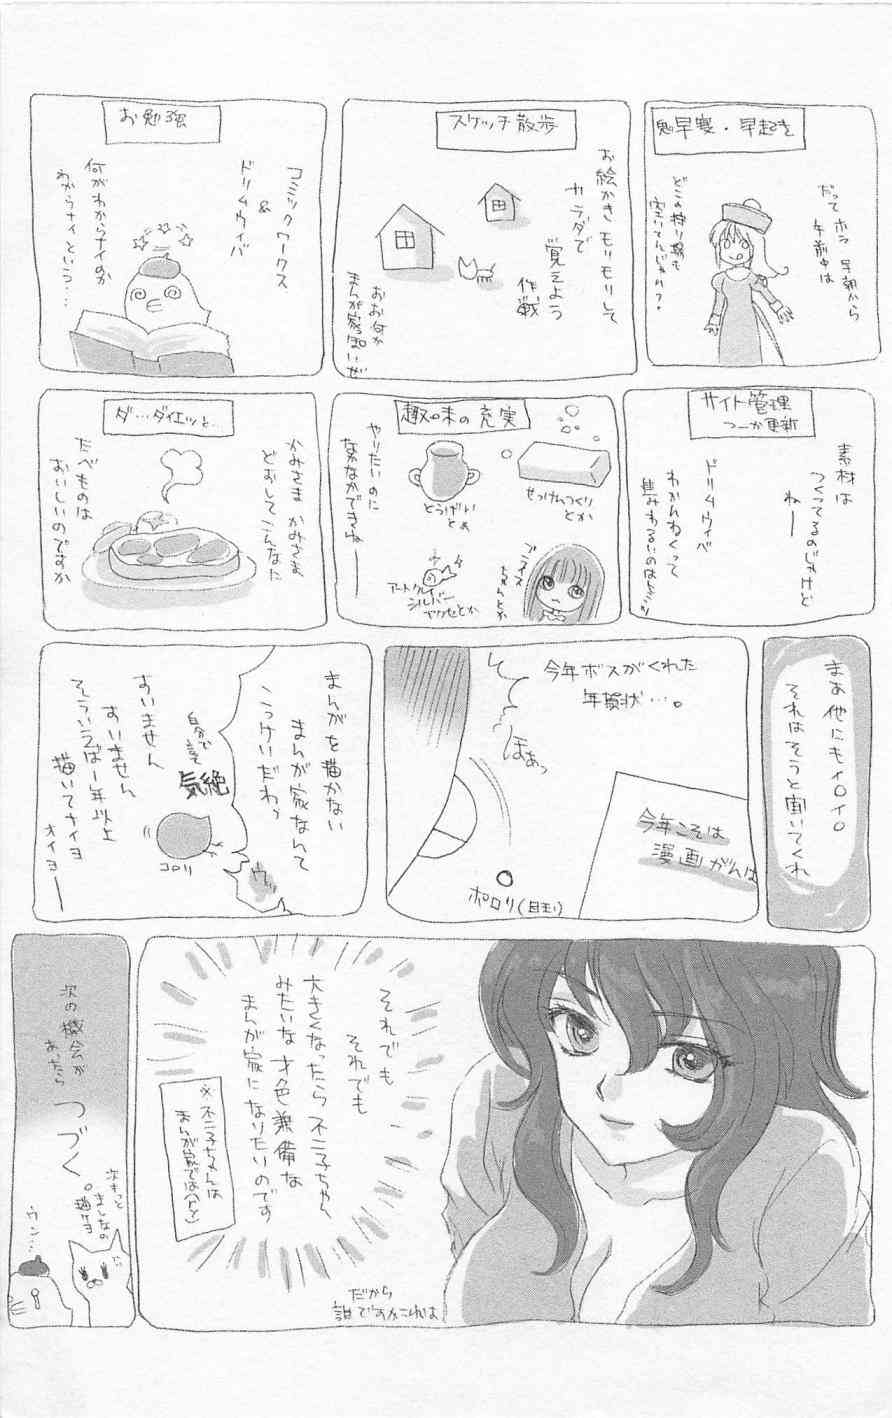 早寝・早起き
だって ホラ 早朝から
午前中は
どこの狩り場も
空いてんじゃん?
スケッチ散歩
お絵かき モリモリして
カラダで
覚えよう
作戦
おお何か
まんが家っぽいぜ
お勉強
コミックワークス
&
ドリムウィバ
何がわからナイのか
わからナイという…
サイト管理
つーか更新
素材は
つくってるのじゃけど
ねー
ドリムウィバ
わかんねくって
趣味の充実
せっけんつくり
とか
とうげい
とか
やりたいのに
なかなかできねー
アートクレイ
シルバー
アクセとか
ダ…ダイエッと…
かみさま かみさま
どおしてこんなに
たべものは
おいしいのですか
まあ 他にもイロイロ
それはそうと聞いてくれ
今年ボスがくれた
年賀状…。
ほあっ
今年こそは
漫画がんば
ポロリ(目玉)
まんがを描かない
まんが家なんて
こっけいだわッ
自分で
言って
気絶
コロリ
ウッ
すいません
すいません
そういえば1年以上
描いてナイヨ
ナイヨー
それでも
それでも
大きくなったら不二子ちゃん
みたいな才色兼備な
まんが家になりたいのです
※不二子ちゃんは
まんが家ではない
だから
誰ですかこれは
次の機会が
あったら
つづく
次きっと
ましなの
描けヨ
ウン…